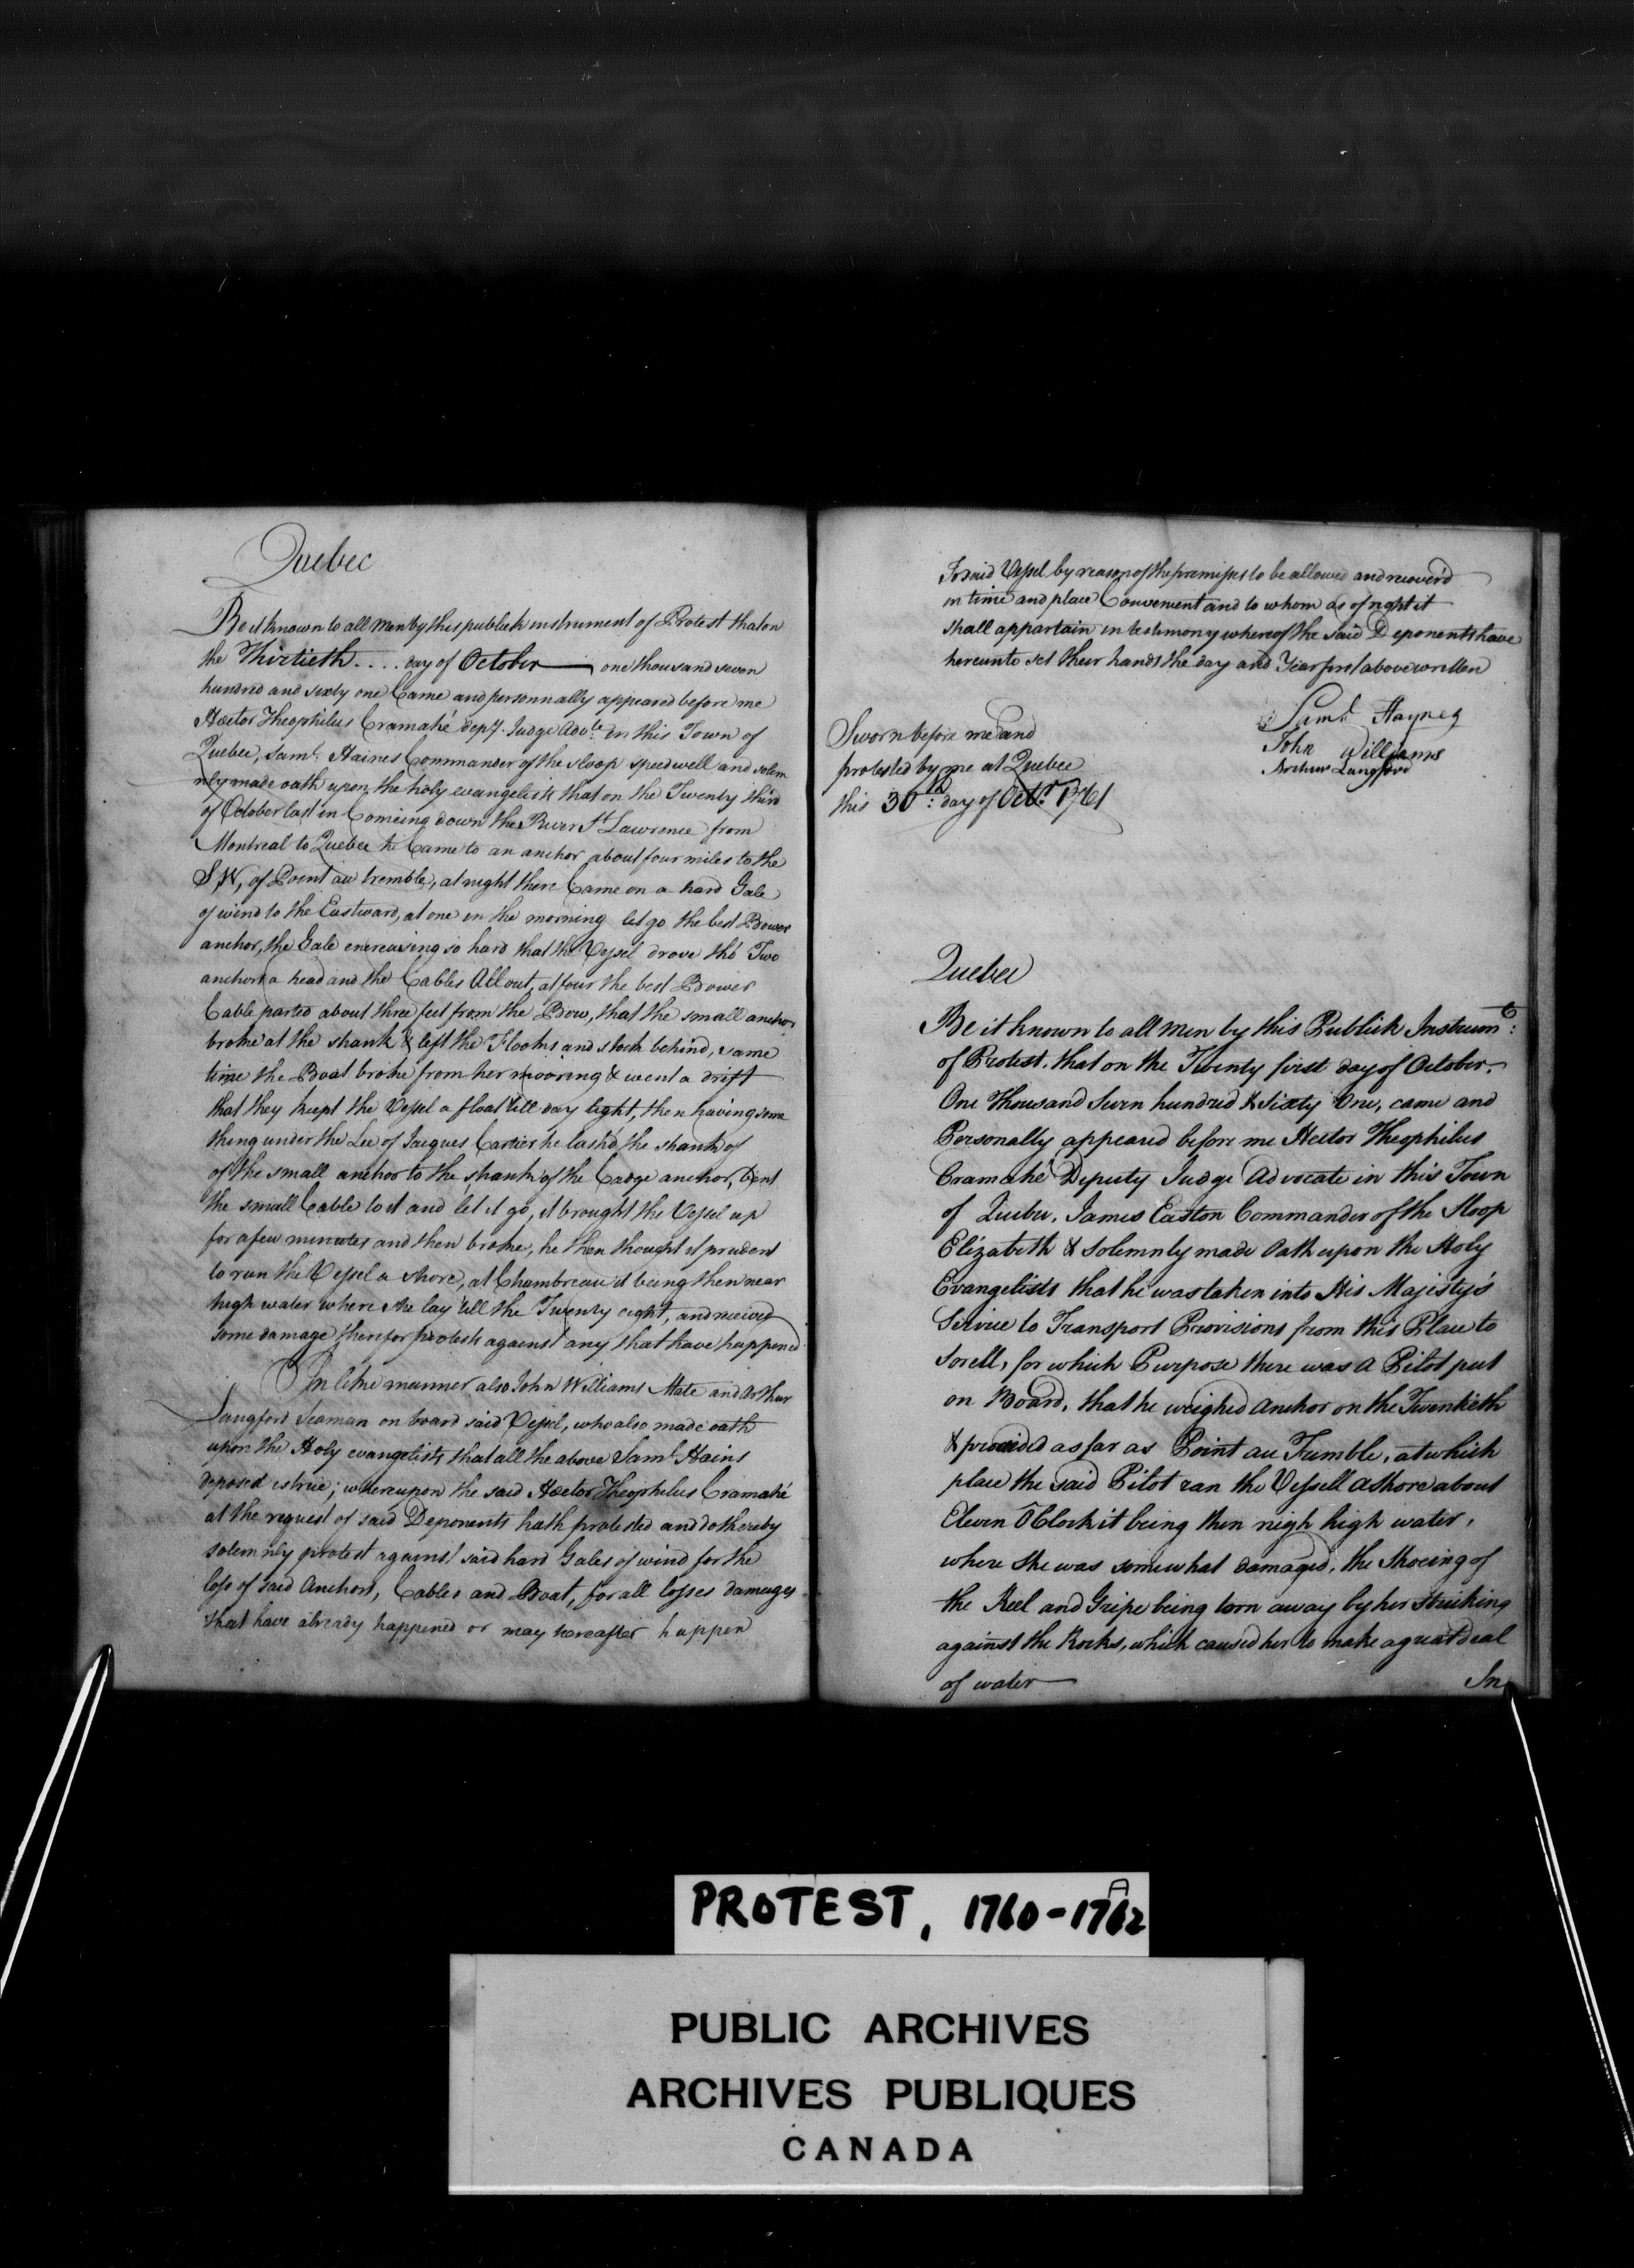 Quebec
Be it known to all Men by this publick instrument of Protest that on
the Thirtieth .... day of October one thousand seven
hundred and sixty one Came and personnally appeared before me
Hector Theophilus Cramahé depy. Judge Advte. in this Town of
Quebec, Saml. Haines Commander of the sloop speedwell and solem
nly made oath upon the holy evangelists that on the Twenty third
of October last in Comeing down the River St Lawrence from
Montreal to Quebec he Came to an anchor about four miles to the
S,W, of Point au tremble, at night there Came on a hard Gale
of wind to the Eastward, at one in the morning let go the best Bower
anchor, the Gale encreasing so hard that the Vessel drove tho' Two
anchors a head and the Cables All out, at four the best Bower
Cable parted about three feet from the Bow, that the small anchor
broke at the shank & left the Flooks and stock behind, same
time the Boat broke from her mooring & went a drift
that they keept the Vessel a float till day light, then having some
thing under the Lee of Jacques Cartier he lash'd the shank of
of the small anchor to the shank of the Cadge anchor, bent
the small Cable to it and let it go, it brought the Vessel up
for a few minutes and then broke, he then thought it prudent
to run the Vessel a shore, at Chambreau it being then near
high water where she lay 'till the Twenty eight, and received
some damage therefor protests against any that have happened
In like manner also John Williams Mate and Arthur
Langford Seaman on board said Vessel, who also made oath
upon the Holy evangelists that all the above Saml. Hains
deposed is true; whereupon the said Hector Theophilus Cramahé
at the request of said Deponents hath protested and do thereby
solemnly protest against said hard Gales of wind for the
loss of said Anchors, Cables and Boat, for all losses damages
that have already happened or may hereafter happen
To said Vessel by reason of the premisses to be allowed and recover'd
in time and place Convenient and to whom as of right it
shall appartain in testimony whereof the said Deponents have
hereunto set their hands the day and Year first above written
Saml. Haynes
John Williams
Arthur Langford
Sworn before me and
protested by me at Quebec
this 30th. day of Octr. 1761
Quebec
Be it known to all Men by this Publick Instrumt:
of Protest, that on the Twenty first day of October
One Thousand Seven hundred & Sixty One, came and
Personally appeared before me Hector Theophilus
Cramahé Deputy Judge Advocate in this Town
of Quebec, James Easton Commander of the Sloop
Elizabeth & Solemnly made Oath upon the Holy
Evangelists that he was taken into His Majesty's
Service to Transport Provisions from this Place to
Sorell, for which Purpose there was a Pilot put
on Board, that he weighed Anchor on the Twentieth
& proceeded as far as Point au Trumble, at which
place the said Pilot ran the Vessell ashore about
Eleven O'Clock it being then nigh high water,
where she was somewhat damaged, the Shoeing of
the Keel and Gripe being torn away by her Striking
against the Rocks, which caused her to make a great deal
of water
In
PROTEST, 1760-1762
A
PUBLIC ARCHIVES
ARCHIVES PUBLIQUES
CANADA